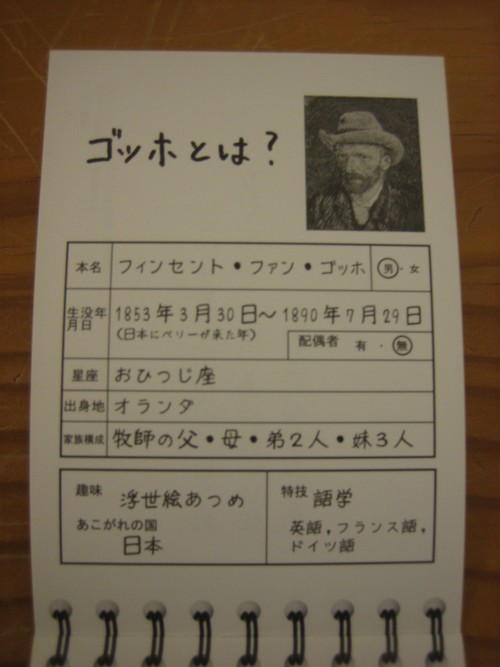 ゴッホとは?
本名 フィンセント・ファン・ゴッホ 男・女
生没年月日 1853年3月30日〜1890年7月29日
(日本にペリーが来た年) 配偶者 有・無
星座 おひつじ座
出身地 オランダ
家族構成 牧師の父・母・弟2人・妹3人
趣味 浮世絵あつめ
あこがれの国
日本
特技 語学
英語,フランス語,
ドイツ語